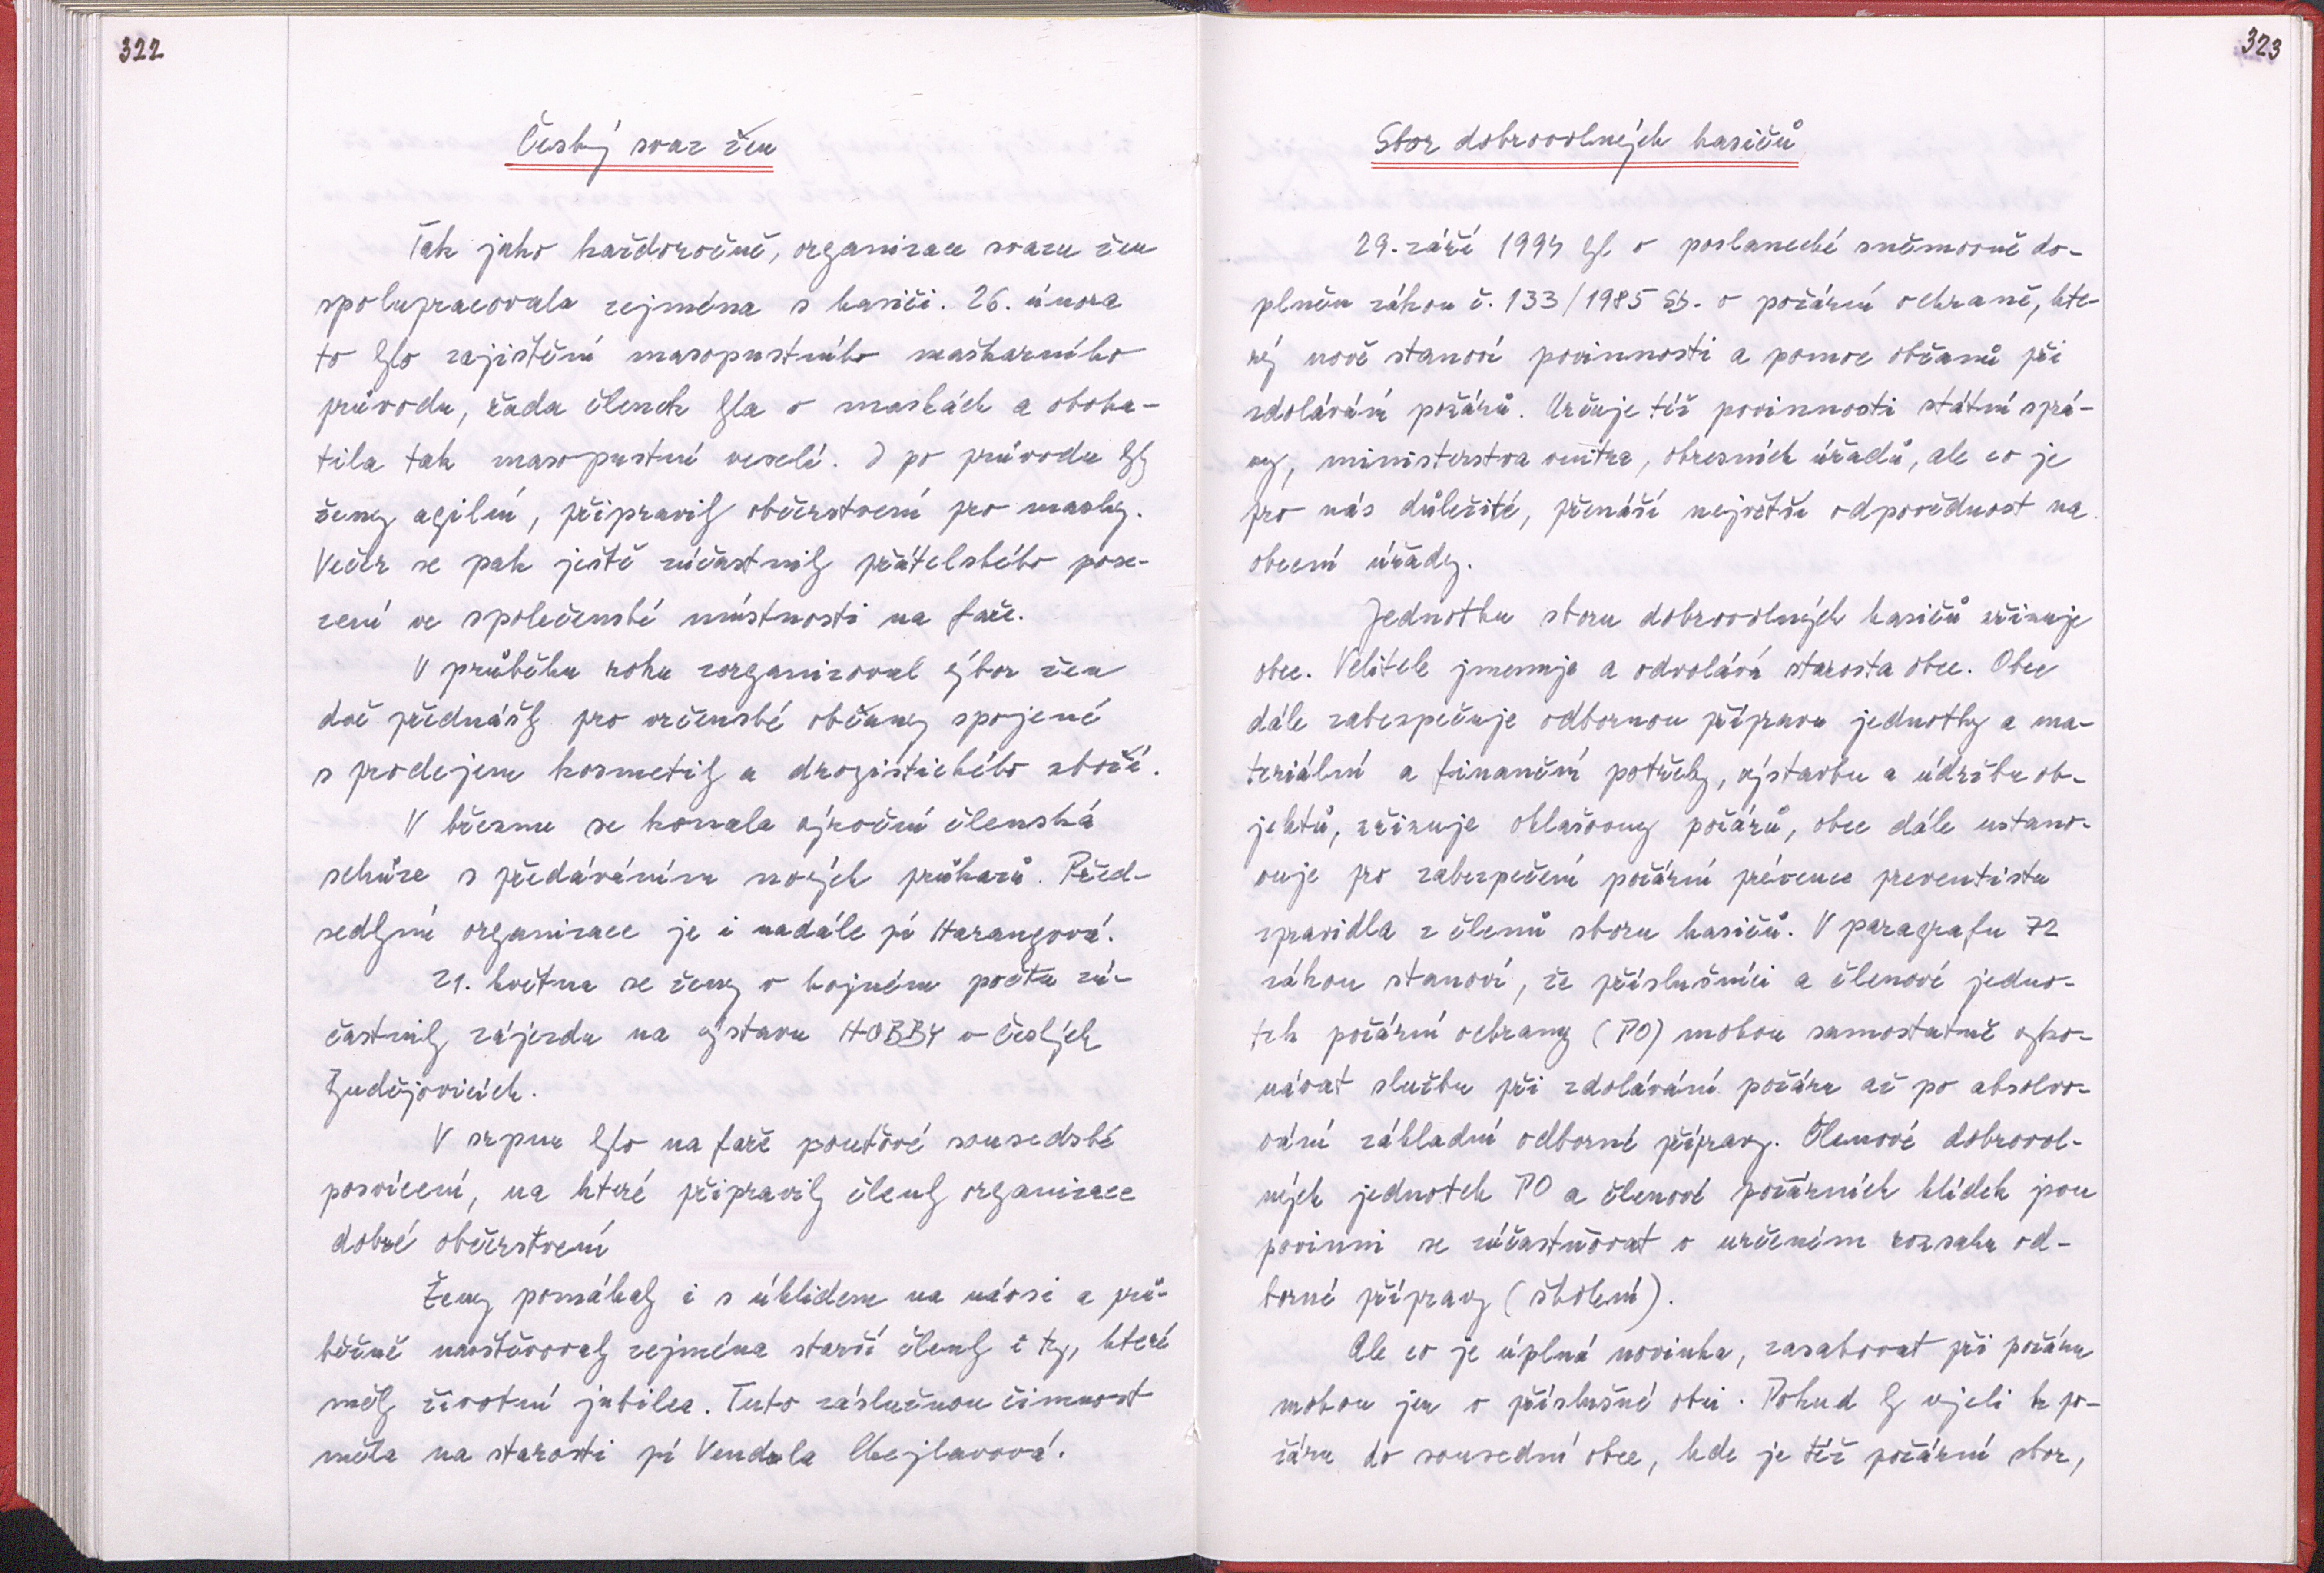 322
Český svaz žen
Tak jako každoročně, organizace svazu žen
spolupracovala zejména s hasiči. 26. února
to bylo zajištění masopustního maškarního
průvodu, řada členek byla v maskách a oboha-
tila tak masopustní veselí. I po průvodu byly
ženy agilní, připravily občerstvení pro masky.
Večer se pak ještě zúčastnily přátelského pose-
zení ve společenské místnosti na faře.
V průběhu roku zorganizoval výbor žen
dvě přednášky pro určenské občany spojené
s prodejem kosmetiky a drogistického zboží.
V březnu se konala výroční členská
schůze s předáváním nových průkazů. Před-
sedkyní organizace je i nadále pí Harangová.
21. května se ženy v hojném počtu zú-
častnily zájezdu na výstavu HOBBY v Českých
Budějovicích.
V srpnu bylo na faře pouťové sousedské
posvícení, na které připravily členky organizace
dobré občerstvení
Ženy pomáhaly i s úklidem na návsi a prů-
běžně navštěvovaly zejména starší členky i ty, které
měly životní jubilea. Tuto záslužnou činnost
měla na starosti pí Vendula Chejlavová.
323
Sbor dobrovolných hasičů
29. září 1994 byl v poslanecké sněmovně do-
plněn zákon č. 133/1985 Sb. o požární ochraně, kte-
rý nově stanoví povinnosti a pomoc občanů při
zdolávání požárů. Určuje též povinnosti státní sprá-
vy, ministerstva vnitra, okresních úřadů, ale co je
pro nás důležité, přenáší největší odpovědnost na
obecní úřady.
Jednotku sboru dobrovolných hasičů zřizuje
obec. Velitele jmenuje a odvolává starosta obce. Obec
dále zabezpečuje odbornou přípravu jednotky a ma-
teriální a finanční potřeby, výstavbu a údržbu ob-
jektů, zřizuje ohlašovny požárů, obec dále ustano-
vuje pro zabezpečení požární prévence preventistu
zpravidla z členů sboru hasičů. V paragrafu 72
zákon stanoví, že příslušníci a členové jedno-
tek požární ochrany (PO) mohou samostatně vyko-
návat službu při zdolávání požáru až po absolvo-
vání základní odborné přípravy. Členové dobrovol-
ných jednotek PO a členové požárních hlídek jsou
povinni se zúčastňovat v určeném rozsahu od-
borné přípravy (školení).
Ale co je úplná novinka, zasahovat při požáru
mohou jen v příslušné obci. Pokud by vyjeli k po-
žáru do sousední obce, kde je též požární sbor,